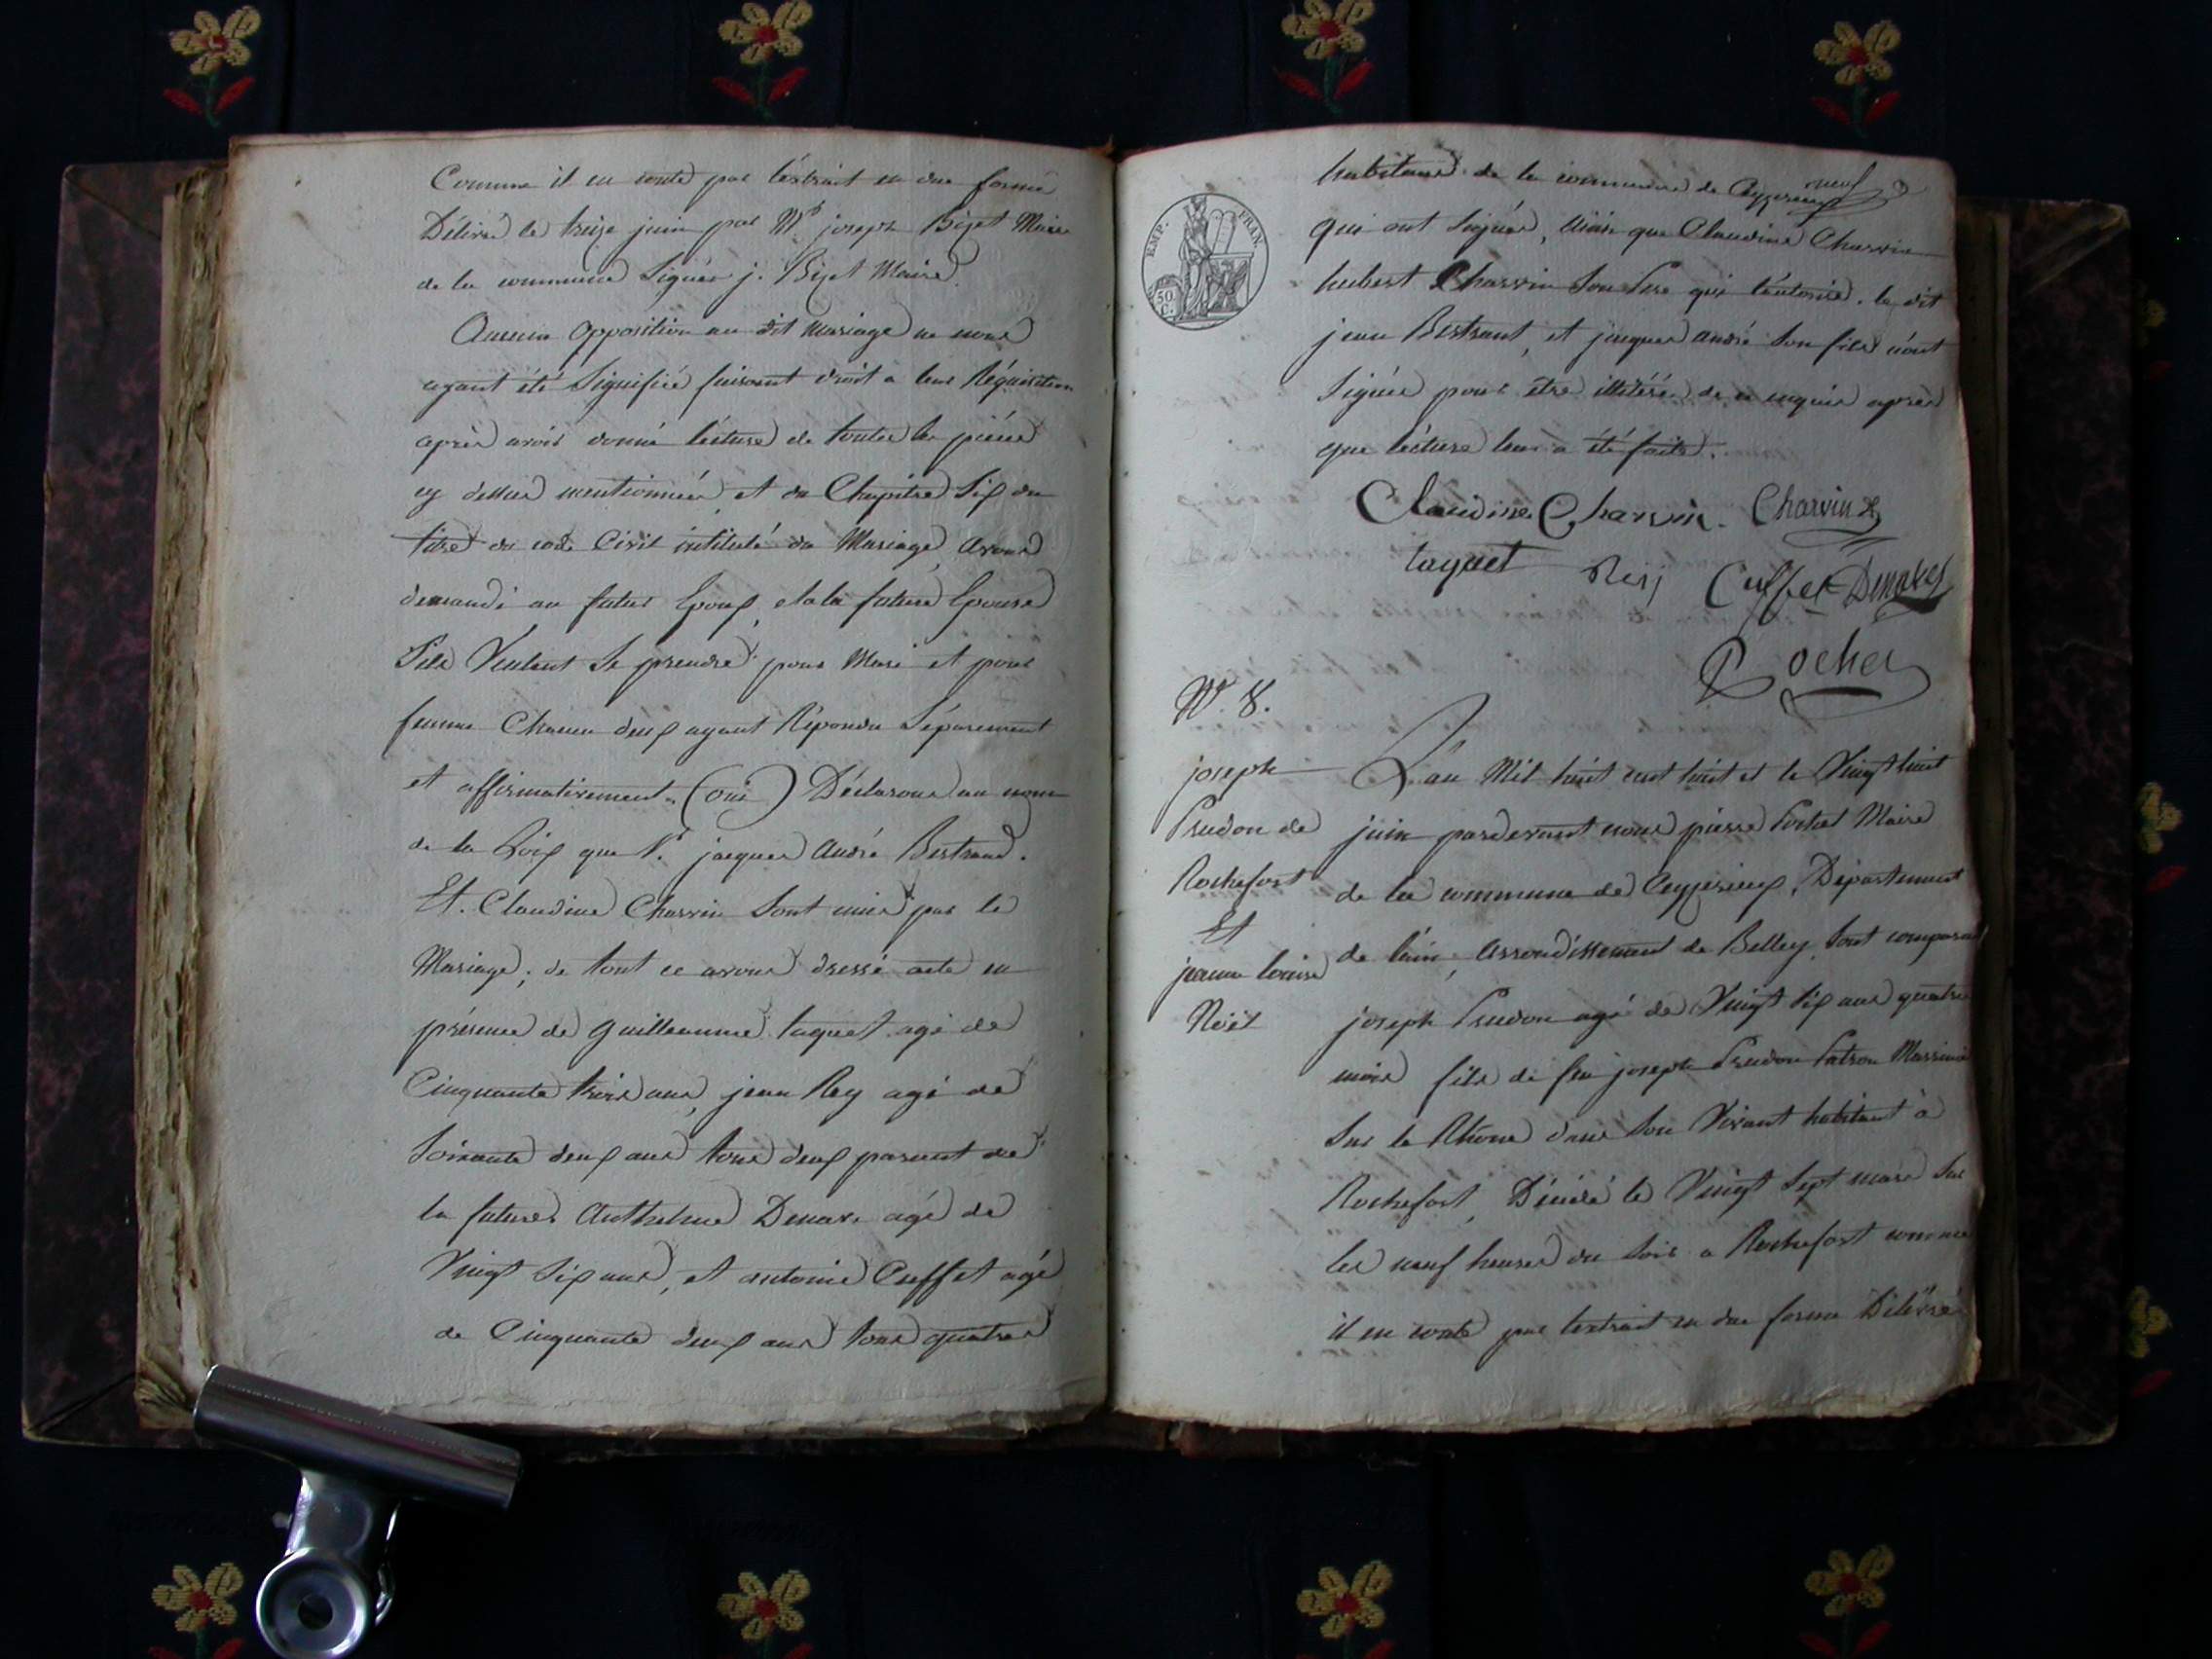 Comme il en conte par l'extrait en due forme
Délivré le treize juin par Mr joseph Bijet Maire
de la commune Signée j. Bijet Maire.
Aucun opposition au dit Mariage ne nous
ayant été Signifiée faisant droit a leur Réquisition
après avoir donné lecture de toutes les pièces
cy dessus mentionnées, et du Chapitre Six du
titre du code Civil intitulé du Mariage, avons
demandé au futur Epoux, et a la future Epouse
S'ils Veulent Se prendre pour Mari et pour
femme Chacun deux ayant Répondu Séparement
et affirmativement. (oui) Déclarons au nom
de la Loix que Sr. jacques André Bertrand.
Et. Claudine Charvin Sont unis par le
Mariage; de tout ce avons dressé acte en
présence de guilleaume taquet agé de
Cinquante trois ans, jean Rey agé de
Soixante deux ans tous deux parent de
la future, Anthelme Demare agé de
Vingt Six ans, et antoine Cuffet agé
de Cinquante deux ans tous quatres
habitans de la commune de Ceyzerieux
EMP. FRAN.
50 C.
qui ont Signés, Ainsi que Claudine Charvin
hubert Charvin Son Pere qui l'autorise. le dit
jean Bertrant, et jacques andré Son fils n'ont
Signés pour être illitérés de ce enquis après
que lécture leur a été faite.
Claudine Charvin. Charvin
taquet Rey Cuffet Demare
Rochet
N°. 8.
joseph
Prudon de
Rochefort
Et
jeanne louise
Noël
L'an Mil huit cent huit et le Vingt huit
juin pardevant nous pierre Portat Maire
de la commune de Ceyzerieux, Département
de l'ain, Arrondissement de Belley, Sont comparus
joseph Prudon agé de Vingt Six ans quatre
mois fils de feu joseph Prudon Patron Marinier
Sur le Rhone dans Son Vivant habitant à
Rochefort, Décédé le Vingt Sept mars Sur
les neuf heures du Soir a Rochefort comme
il en conte par l'extrait en due forme Délivré